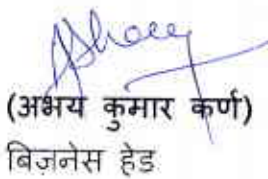 (अभय कुमार कर्ण)
बिज़नेस हेड